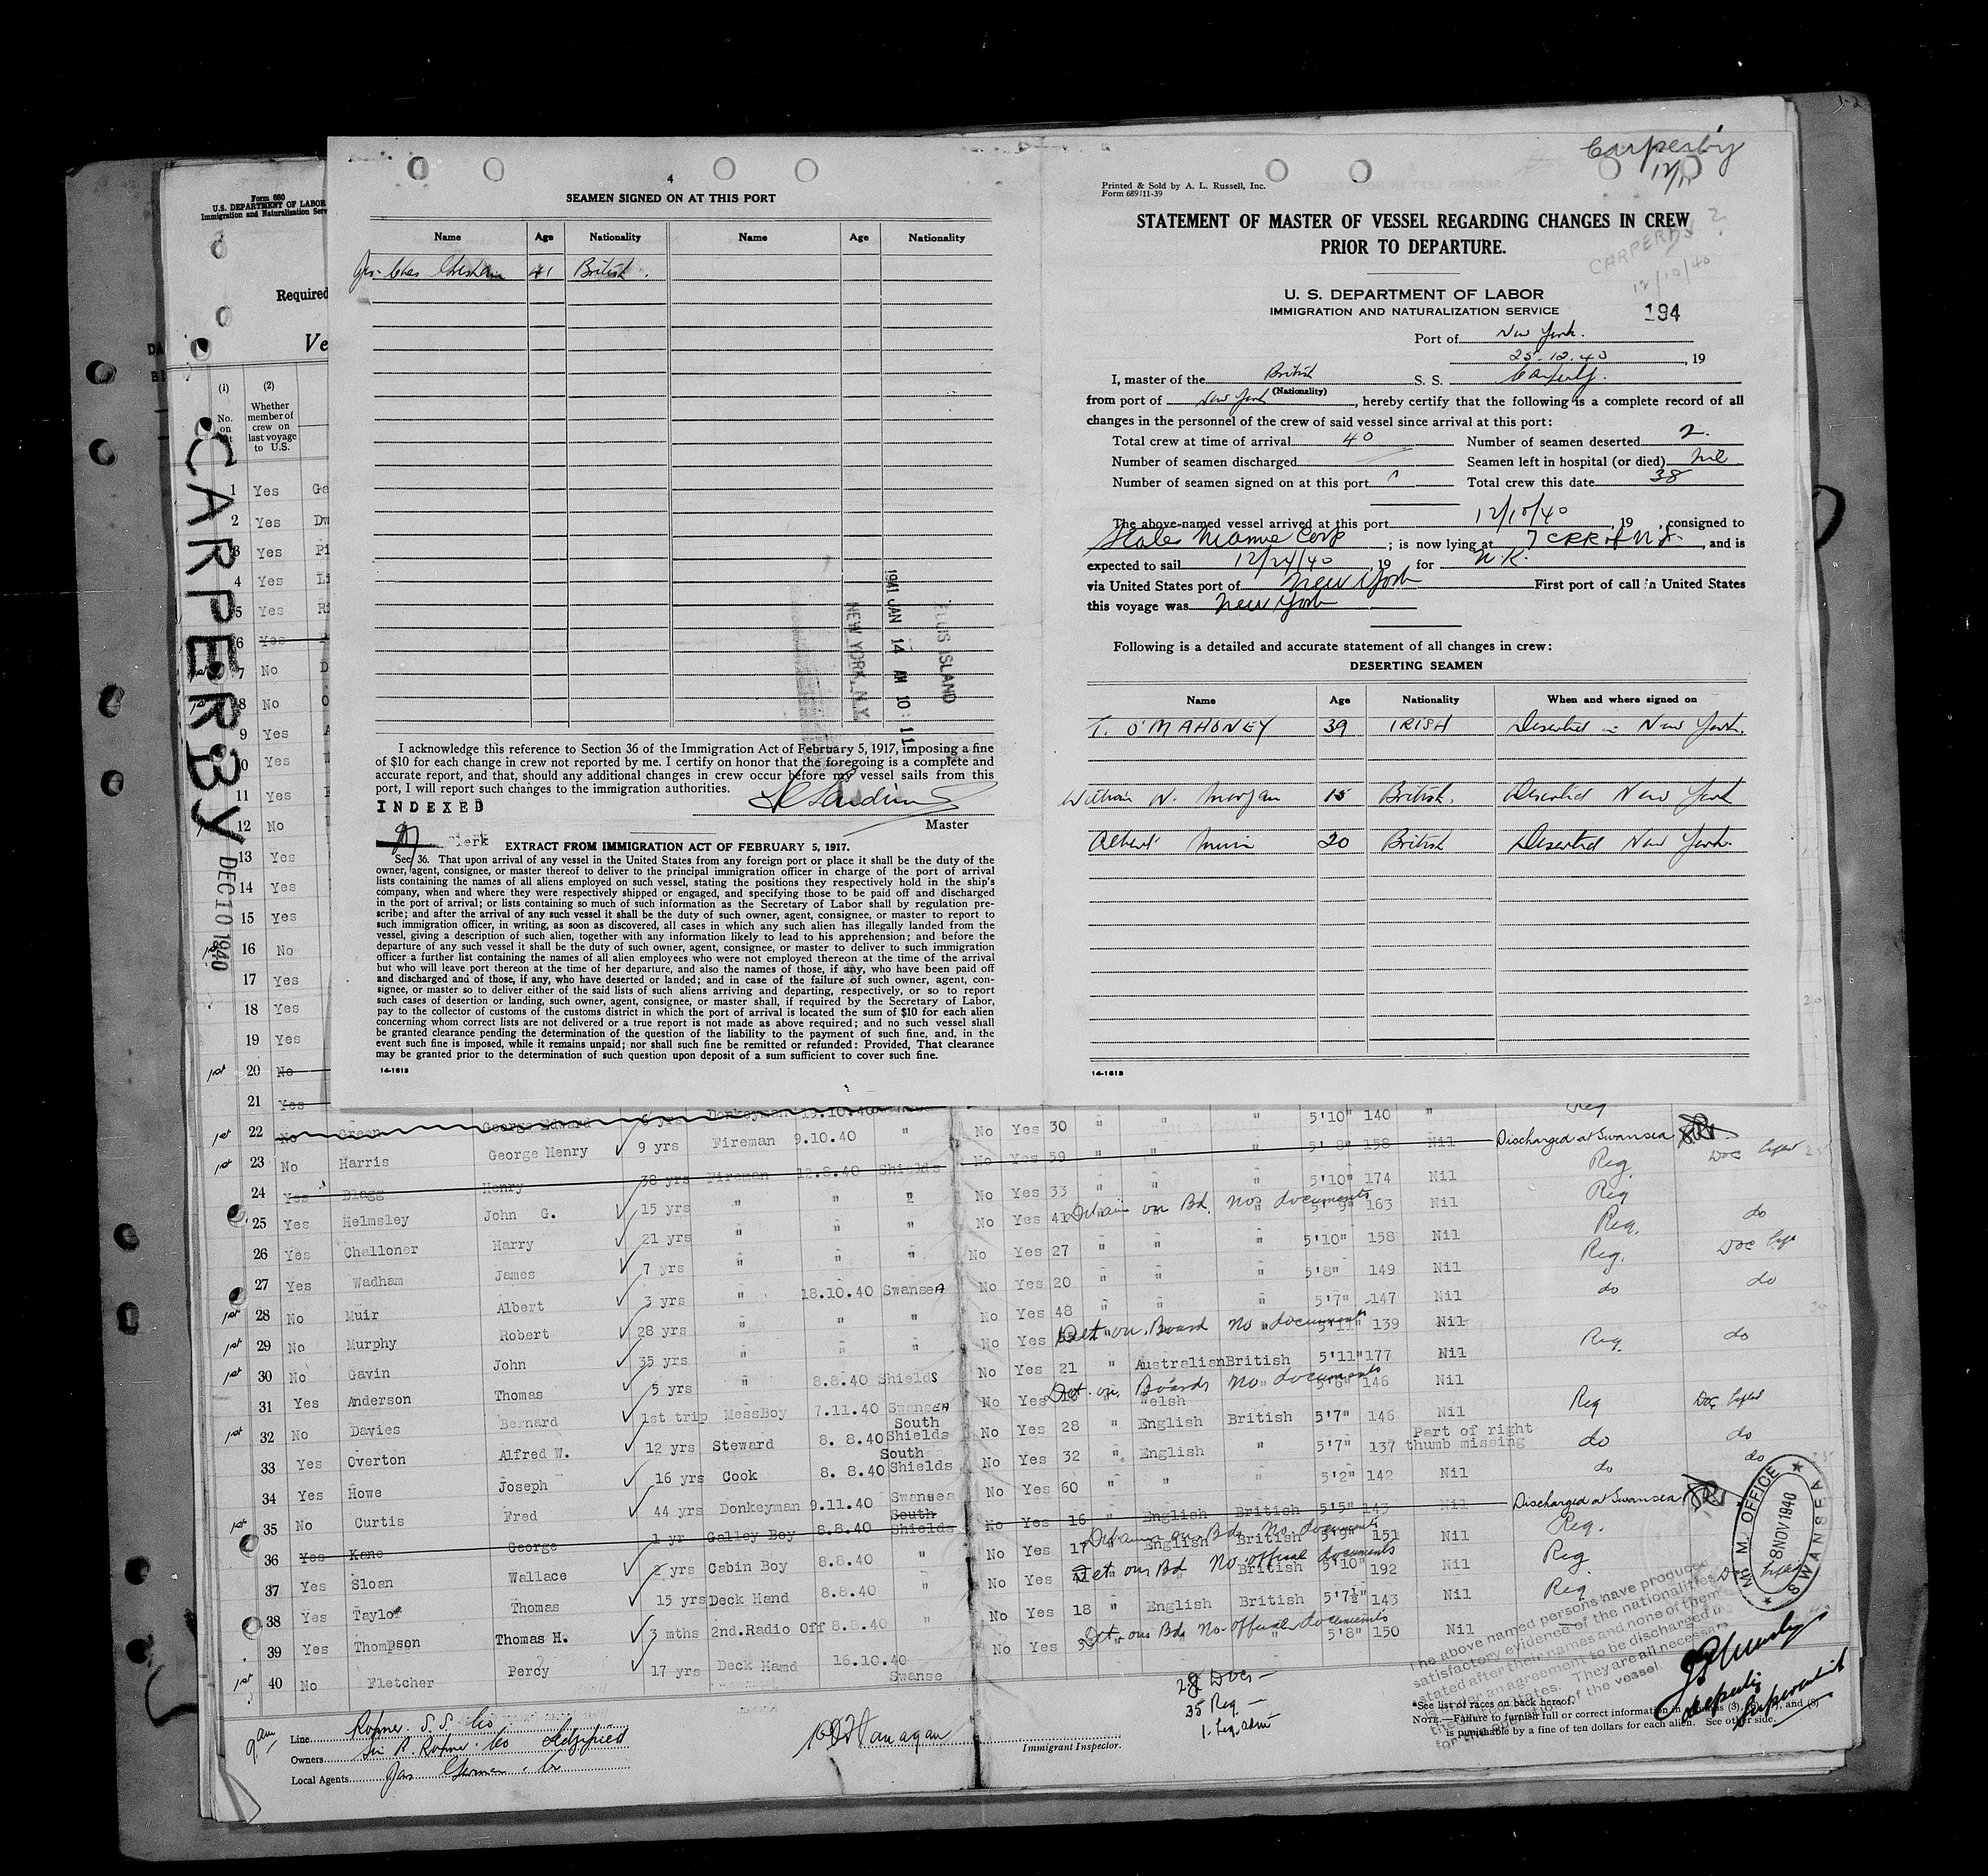 Carperby
12/10
Form 680
U. S. DEPARTMENT OF LABOR
Immigration and Naturalization Serv
Required
Ve
(1) (2)
No. on Whether member of crew on last voyage to U.S.
CARPERBY DEC 10 1940
1 Yes Ga
2 Yes Dw
3 Yes Pi
4 Yes Li
5 Yes Ri
6 Yes
7 No D
8 No O
9 Yes
10 Yes
11 Yes
12 No
13 Yes
14 Yes
15 Yes
1st 16 No
17 Yes
18 Yes
19 Yes
1st 20 No
21 Yes
4
SEAMEN SIGNED ON AT THIS PORT
Name Age Nationality Name Age Nationality
41 British.
ELLIS ISLAND
1941 JAN 14 AM 10:11
NEW YORK, N.Y.
I acknowledge this reference to Section 36 of the Immigration Act of February 5, 1917, imposing a fine
of $10 for each change in crew not reported by me. I certify on honor that the foregoing is a complete and
accurate report, and that, should any additional changes in crew occur before my vessel sails from this
port, I will report such changes to the immigration authorities.
INDEXED
Master
Clerk
EXTRACT FROM IMMIGRATION ACT OF FEBRUARY 5, 1917.
Sec. 36. That upon arrival of any vessel in the United States from any foreign port or place it shall be the duty of the
owner, agent, consignee, or master thereof to deliver to the principal immigration officer in charge of the port of arrival
lists containing the names of all aliens employed on such vessel, stating the positions they respectively hold in the ship's
company, when and where they were respectively shipped or engaged, and specifying those to be paid off and discharged
in the port of arrival; or lists containing so much of such information as the Secretary of Labor shall by regulation pre-
scribe; and after the arrival of any such vessel it shall be the duty of such owner, agent, consignee, or master to report to
such immigration officer, in writing, as soon as discovered, all cases in which any such alien has illegally landed from the
vessel, giving a description of such alien, together with any information likely to lead to his apprehension; and before the
departure of any such vessel it shall be the duty of such owner, agent, consignee, or master to deliver to such immigration
officer a further list containing the names of all alien employees who were not employed thereon at the time of the arrival
but who will leave port thereon at the time of her departure, and also the names of those, if any, who have been paid off
and discharged and of those, if any, who have deserted or landed; and in case of the failure of such owner, agent, con-
signee, or master so to deliver either of the said lists of such aliens arriving and departing, respectively, or so to report
such cases of desertion or landing, such owner, agent, consignee, or master shall, if required by the Secretary of Labor,
pay to the collector of customs of the customs district in which the port of arrival is located the sum of $10 for each alien
concerning whom correct lists are not delivered or a true report is not made as above required; and no such vessel shall
be granted clearance pending the determination of the question of the liability to the payment of such fine, and, in the
event such fine is imposed, while it remains unpaid; nor shall such fine be remitted or refunded: Provided, That clearance
may be granted prior to the determination of such question upon deposit of a sum sufficient to cover such fine.
14-1613
Printed & Sold by A. L. Russell, Inc.
Form 689:11-39
STATEMENT OF MASTER OF VESSEL REGARDING CHANGES IN CREW
PRIOR TO DEPARTURE.
CARPERBY ?
12/10/40
U. S. DEPARTMENT OF LABOR
IMMIGRATION AND NATURALIZATION SERVICE
194
Port of New York.
25.12.40, 19
I, master of the British S. S. Carperby.
(Nationality)
from port of New York, hereby certify that the following is a complete record of all
changes in the personnel of the crew of said vessel since arrival at this port:
Total crew at time of arrival 40 Number of seamen deserted 2.
Number of seamen discharged Seamen left in hospital (or died) nil
Number of seamen signed on at this port 1 Total crew this date 38
The above-named vessel arrived at this port 12/10/40, 19 , consigned to
States Marine Corp; is now lying at 7 CRR of N.J., and is
expected to sail 12/24/40, 19 for U.K.
via United States port of New York First port of call in United States
this voyage was New York
Following is a detailed and accurate statement of all changes in crew:
DESERTING SEAMEN
Name Age Nationality When and where signed on
T. O'MAHONEY 39 IRISH Deserted in New York.
William N. Morgan 15 British. Deserted New York
Albert Muir 20 British Deserted New York.
14-1613
1st 22 No Green George Edward 6 yrs Donkeyman 15.10.40 Swansea No Yes 30 " " " 5'10" 140 " Req
1st 23 No Harris George Henry 9 yrs Fireman 9.10.40 " No Yes 59 " " " 5'8" 158 Nil Discharged at Swansea
24 Yes Blagg Henry 38 yrs Fireman 12.8.40 Shields No Yes 33 " " " 5'10" 174 Nil Req.
25 Yes Helmsley John G. 15 yrs " " " No Yes 41 Detain on Bd. No documents 5'9" 163 Nil Req
26 Yes Challoner Harry 21 yrs " " " No Yes 27 " " " 5'10" 158 Nil Req. do
27 Yes Wadham James 7 yrs " " " No Yes 20 " " " 5'8" 149 Nil Req.
1st 28 No Muir Albert 3 yrs " 18.10.40 Swansea No Yes 48 " " " 5'7" 147 Nil do do
1st 29 No Murphy Robert 28 yrs " " " No Yes Det on Board No documents 5'11" 139 Nil
1st 30 No Gavin John 35 yrs " " " No Yes 21 " Australian British 5'11" 177 Nil Req. do
31 Yes Anderson Thomas 5 yrs " 8.8.40 Shields No Yes Det. on Board No documents 5'6" 146 Nil
1st 32 No Davies Bernard 1st trip MessBoy 7.11.40 Swansea No Yes 28 " Welsh English British 5'7" 146 Nil Req
33 Yes Overton Alfred W. 12 yrs Steward 8. 8.40 South Shields No Yes 32 " English " 5'7" 137 Part of right thumb missing do do
34 Yes Howe Joseph 16 yrs Cook 8. 8.40 South Shields No Yes 60 " " " 5'2" 142 Nil do do
1st 35 No Curtis Fred 44 yrs Donkeyman 9.11.40 Swansea No Yes 16 " English British 5'5" 143 Nil Discharged at Swansea
36 Yes Kane George 1 yr Galley Boy 8.8.40 South Shields No Yes 17 Detain on Bd. No documents English British 5'9" 151 Nil Req.
37 Yes Sloan Wallace 2 yrs Cabin Boy 8.8.40 " No Yes Det on Bd No official documents British 5'10" 192 Nil Req
38 Yes Taylor Thomas 15 yrs Deck Hand 8.8.40 " No Yes 18 " English British 5'7½" 143 Nil Req
39 Yes Thompson Thomas H. 3 mths 2nd.Radio Off 8.8.40 " No Yes Det on Bd. No official documents 5'8" 150 Nil
1st 40 No Fletcher Percy 17 yrs Deck Hamd 16.10.40 Swanse
M. M. OFFICE SWANSEA
8 NOV 1940
The above named persons have produced
satisfactory evidence of the nationalities
stated after their names and none of them
is under an agreement to be discharged in
the United States. They are all necessary
for the operation of the vessel.
28 Docs
35 Req
*See list of races on back hereof.
NOTE.—Failure to furnish full or correct information in columns (3), and (5)
is punishable by a fine of ten dollars for each alien. See other side.
Superintendent
9 am
Line Ropner S. S. Co
Owners Sir R. Ropner Co
Local Agents
Immigrant Inspector.